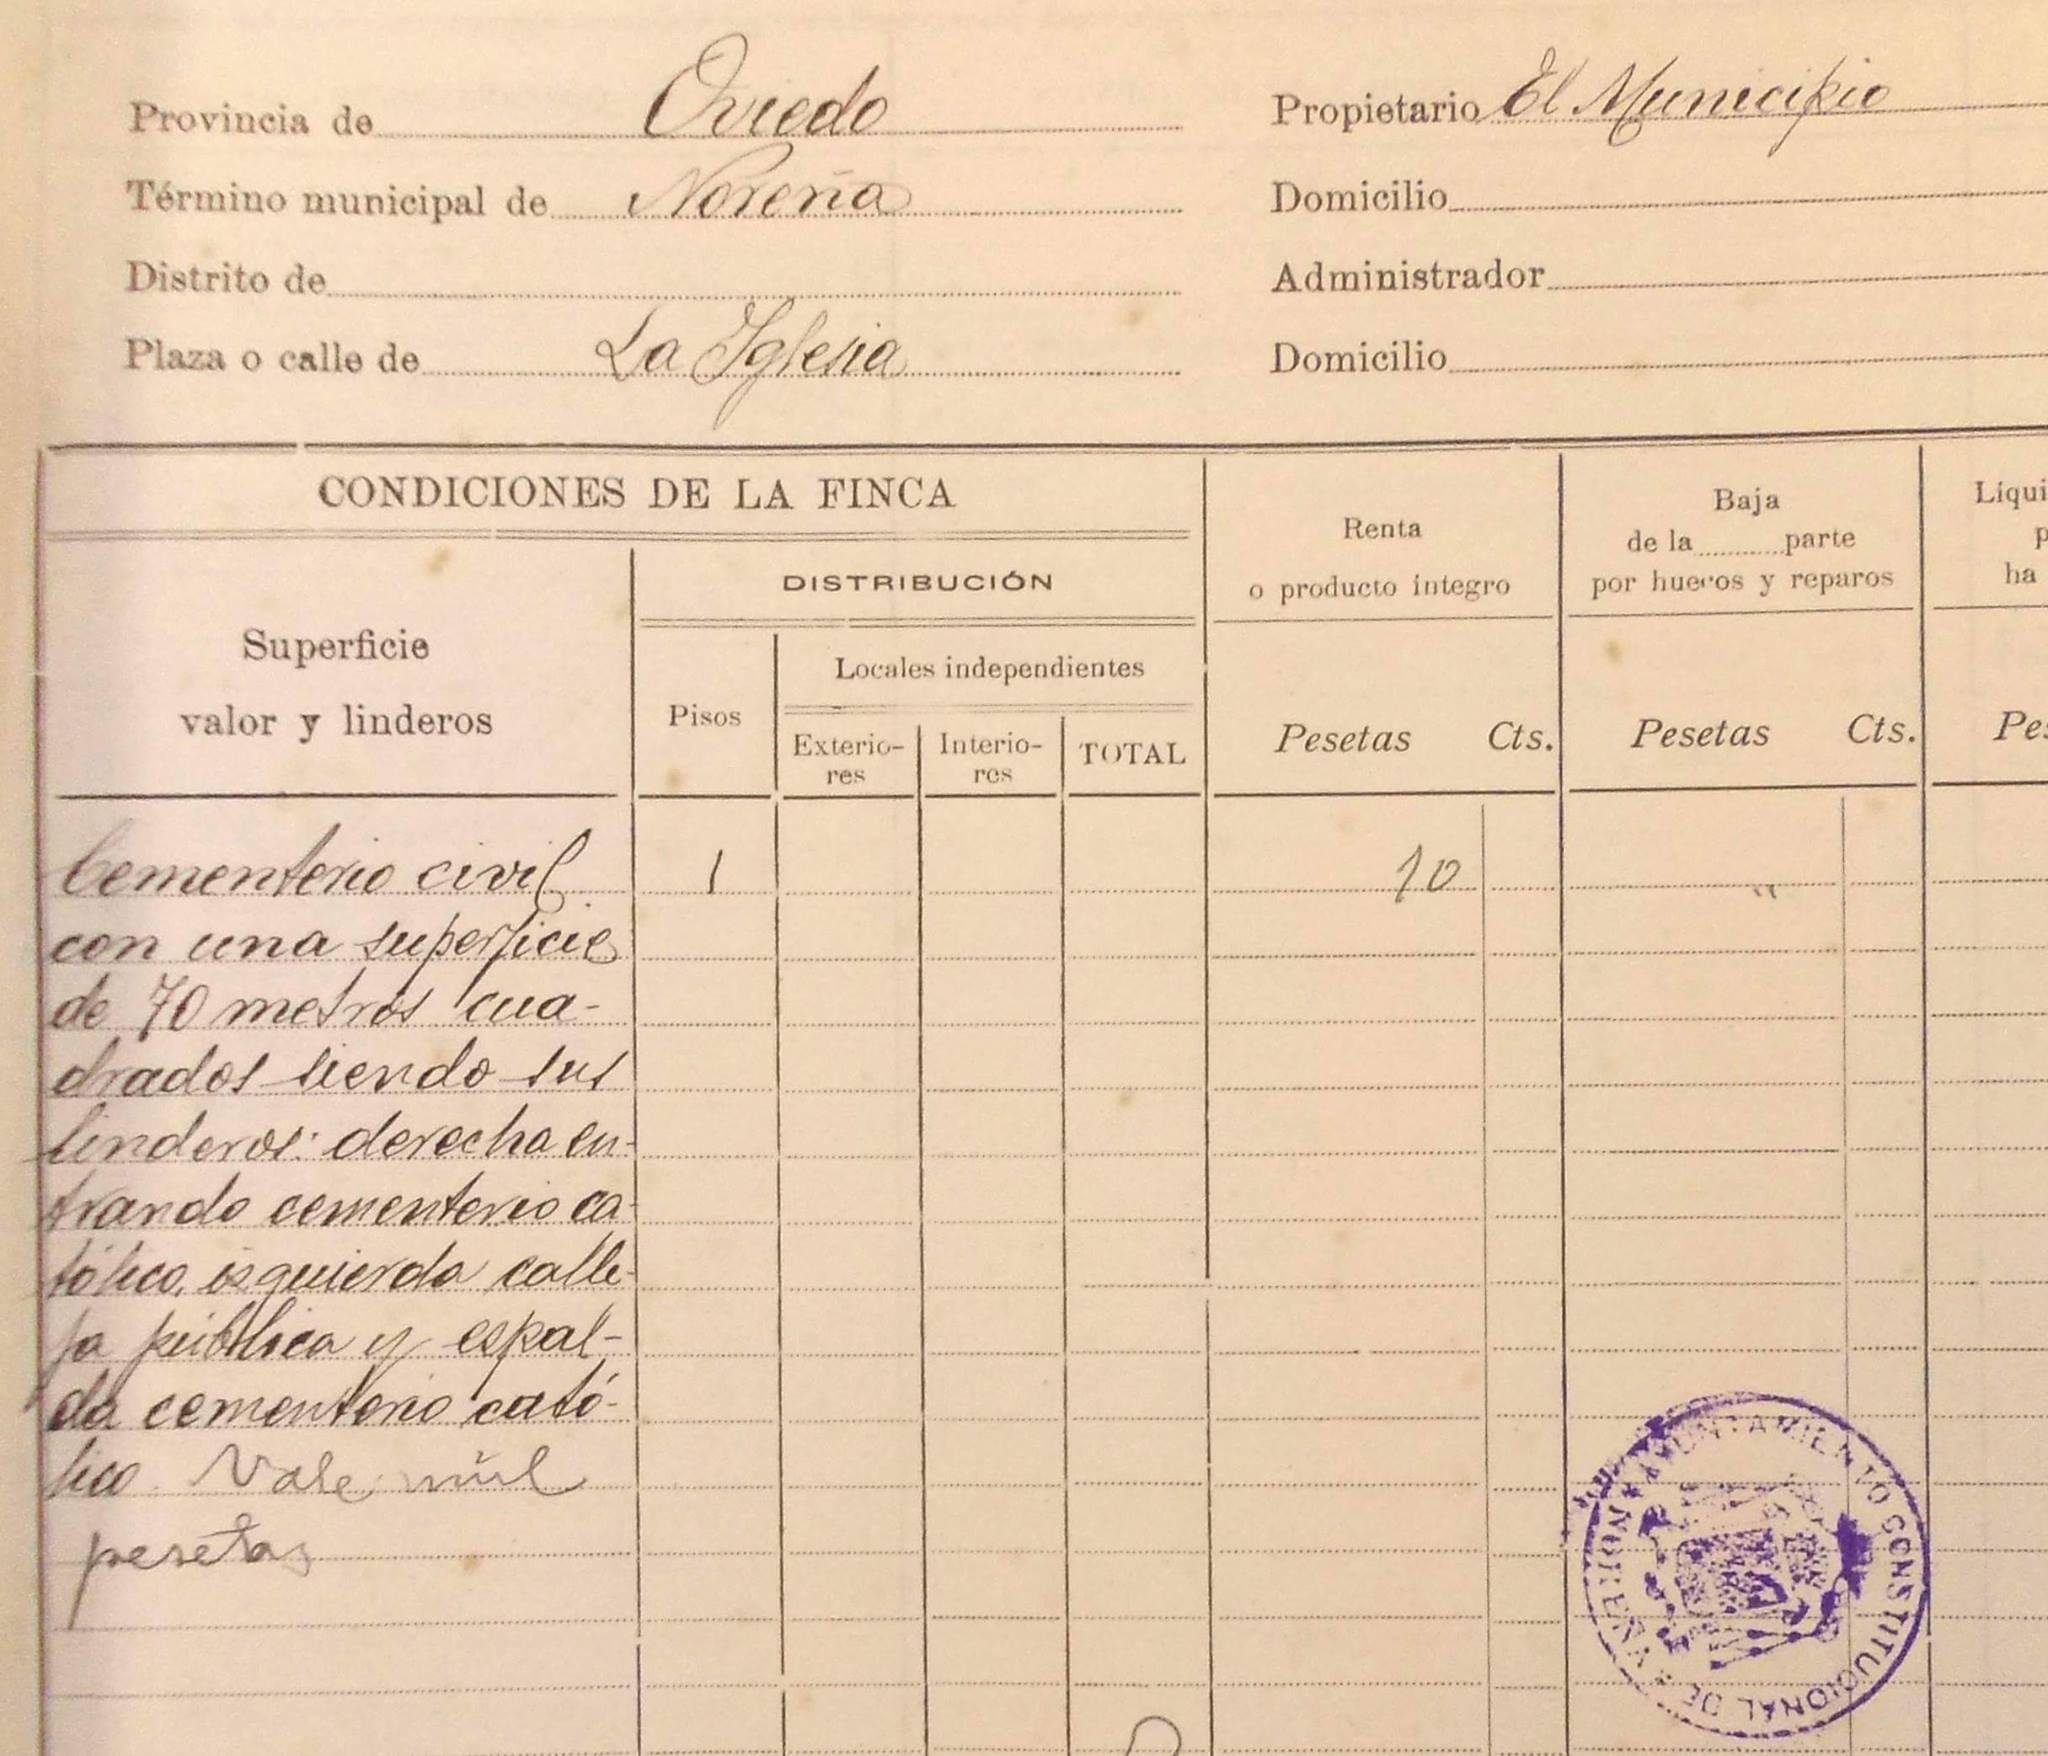 Provincia de Oviedo
Término municipal de Noreña
Distrito de
Plaza o calle de La Iglesia
Propietario El Municipio
Domicilio
Administrador
Domicilio
CONDICIONES DE LA FINCA
Superficie
valor y linderos
DISTRIBUCIÓN
Pisos
Locales independientes
Exterio-
res
Interio-
res
TOTAL
Renta
o producto integro
Pesetas Cts.
Baja
de la parte
por huecos y reparos
Pesetas Cts.
Liqui
p
ha
Pes
Cementerio civil 1 10 "
con una superficie
de 70 metros cua-
drados siendo sus
linderos: derecha en-
trando cementerio ca-
tólico, izquierda calle-
ja pública y espal-
da cementerio cató-
lico. Vale mil
pesetas
AYUNTAMIENTO CONSTITUCIONAL DE NOREÑA